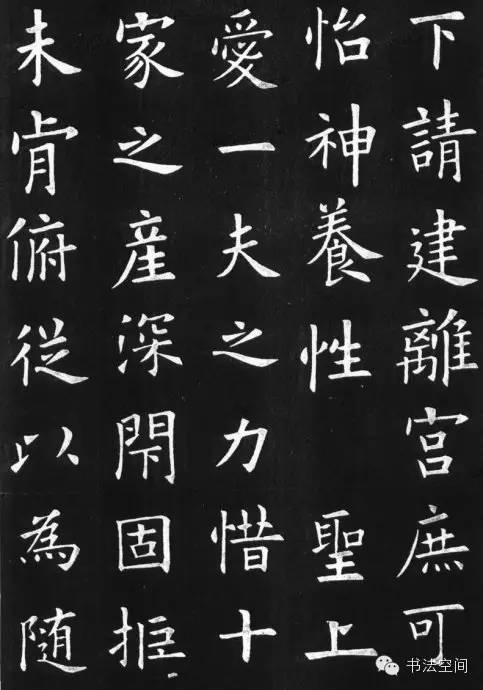 下請建離宮庶可
怡神養性聖上
愛一夫之力惜十
家之産深閇固拒
未肯俯從以為随
书法空间